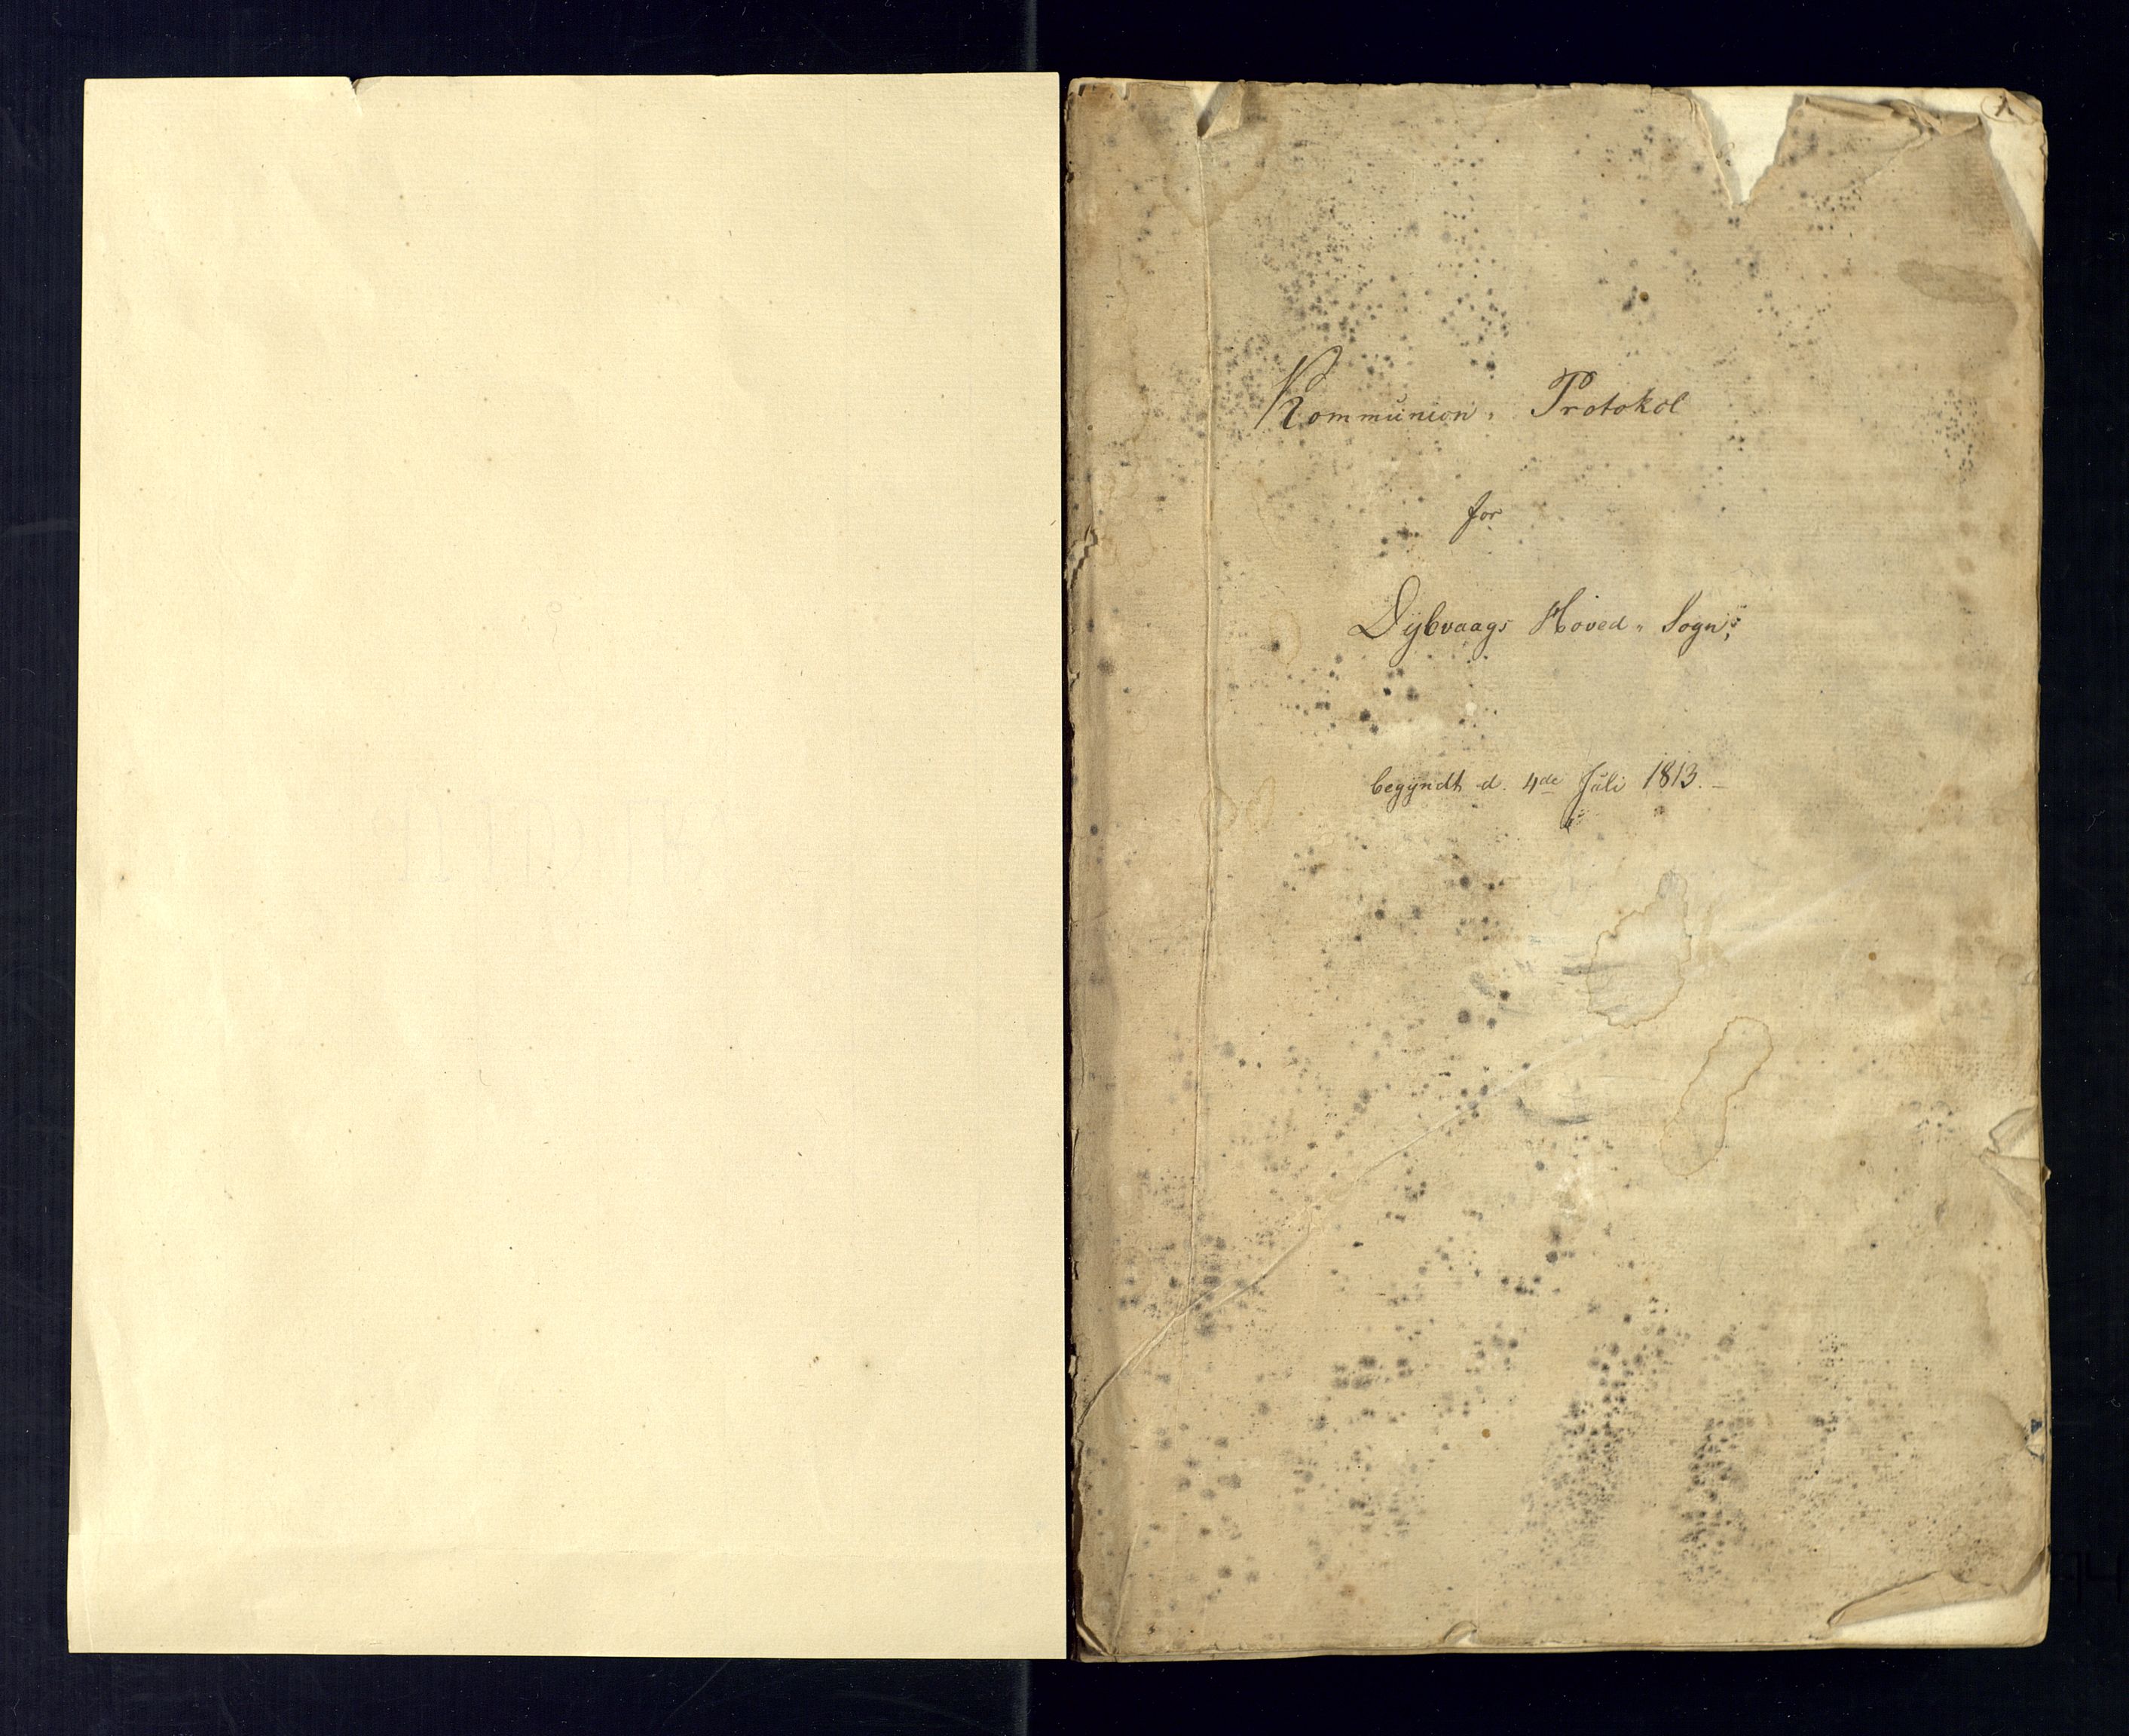 1.
Kommunion, Protokol
for
Dybvaags Hoved, Sogn,
begyndt d. 4de Juli 1813. -